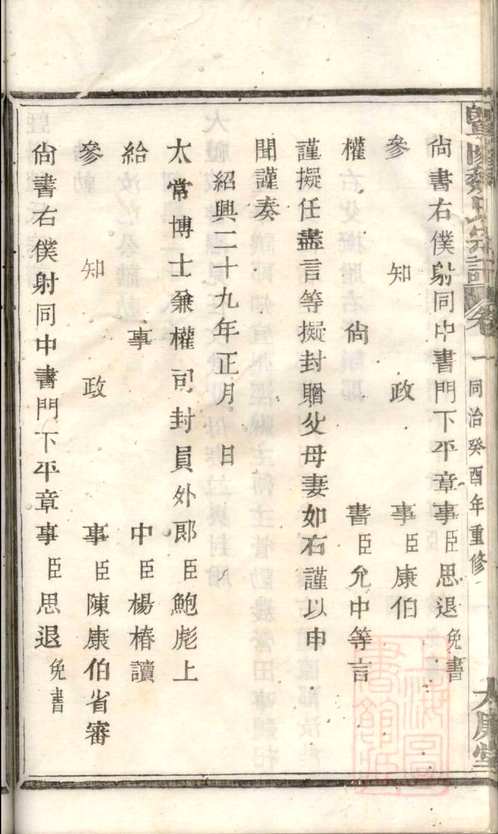 尙書右僕射同中書門下平章事臣思退免書
參知政事臣康伯
權尙書臣允中等言
謹擬任盡言等擬封贈父母妻如右謹以申
聞謹奏
紹興二十九年正月日
太常博士兼權司封員外郞臣鮑彪上
給事中臣楊椿讀
參知政事臣陳康伯省審
尙書右僕射同中書門下平章事臣思退免書
卷一
同治癸酉年重修